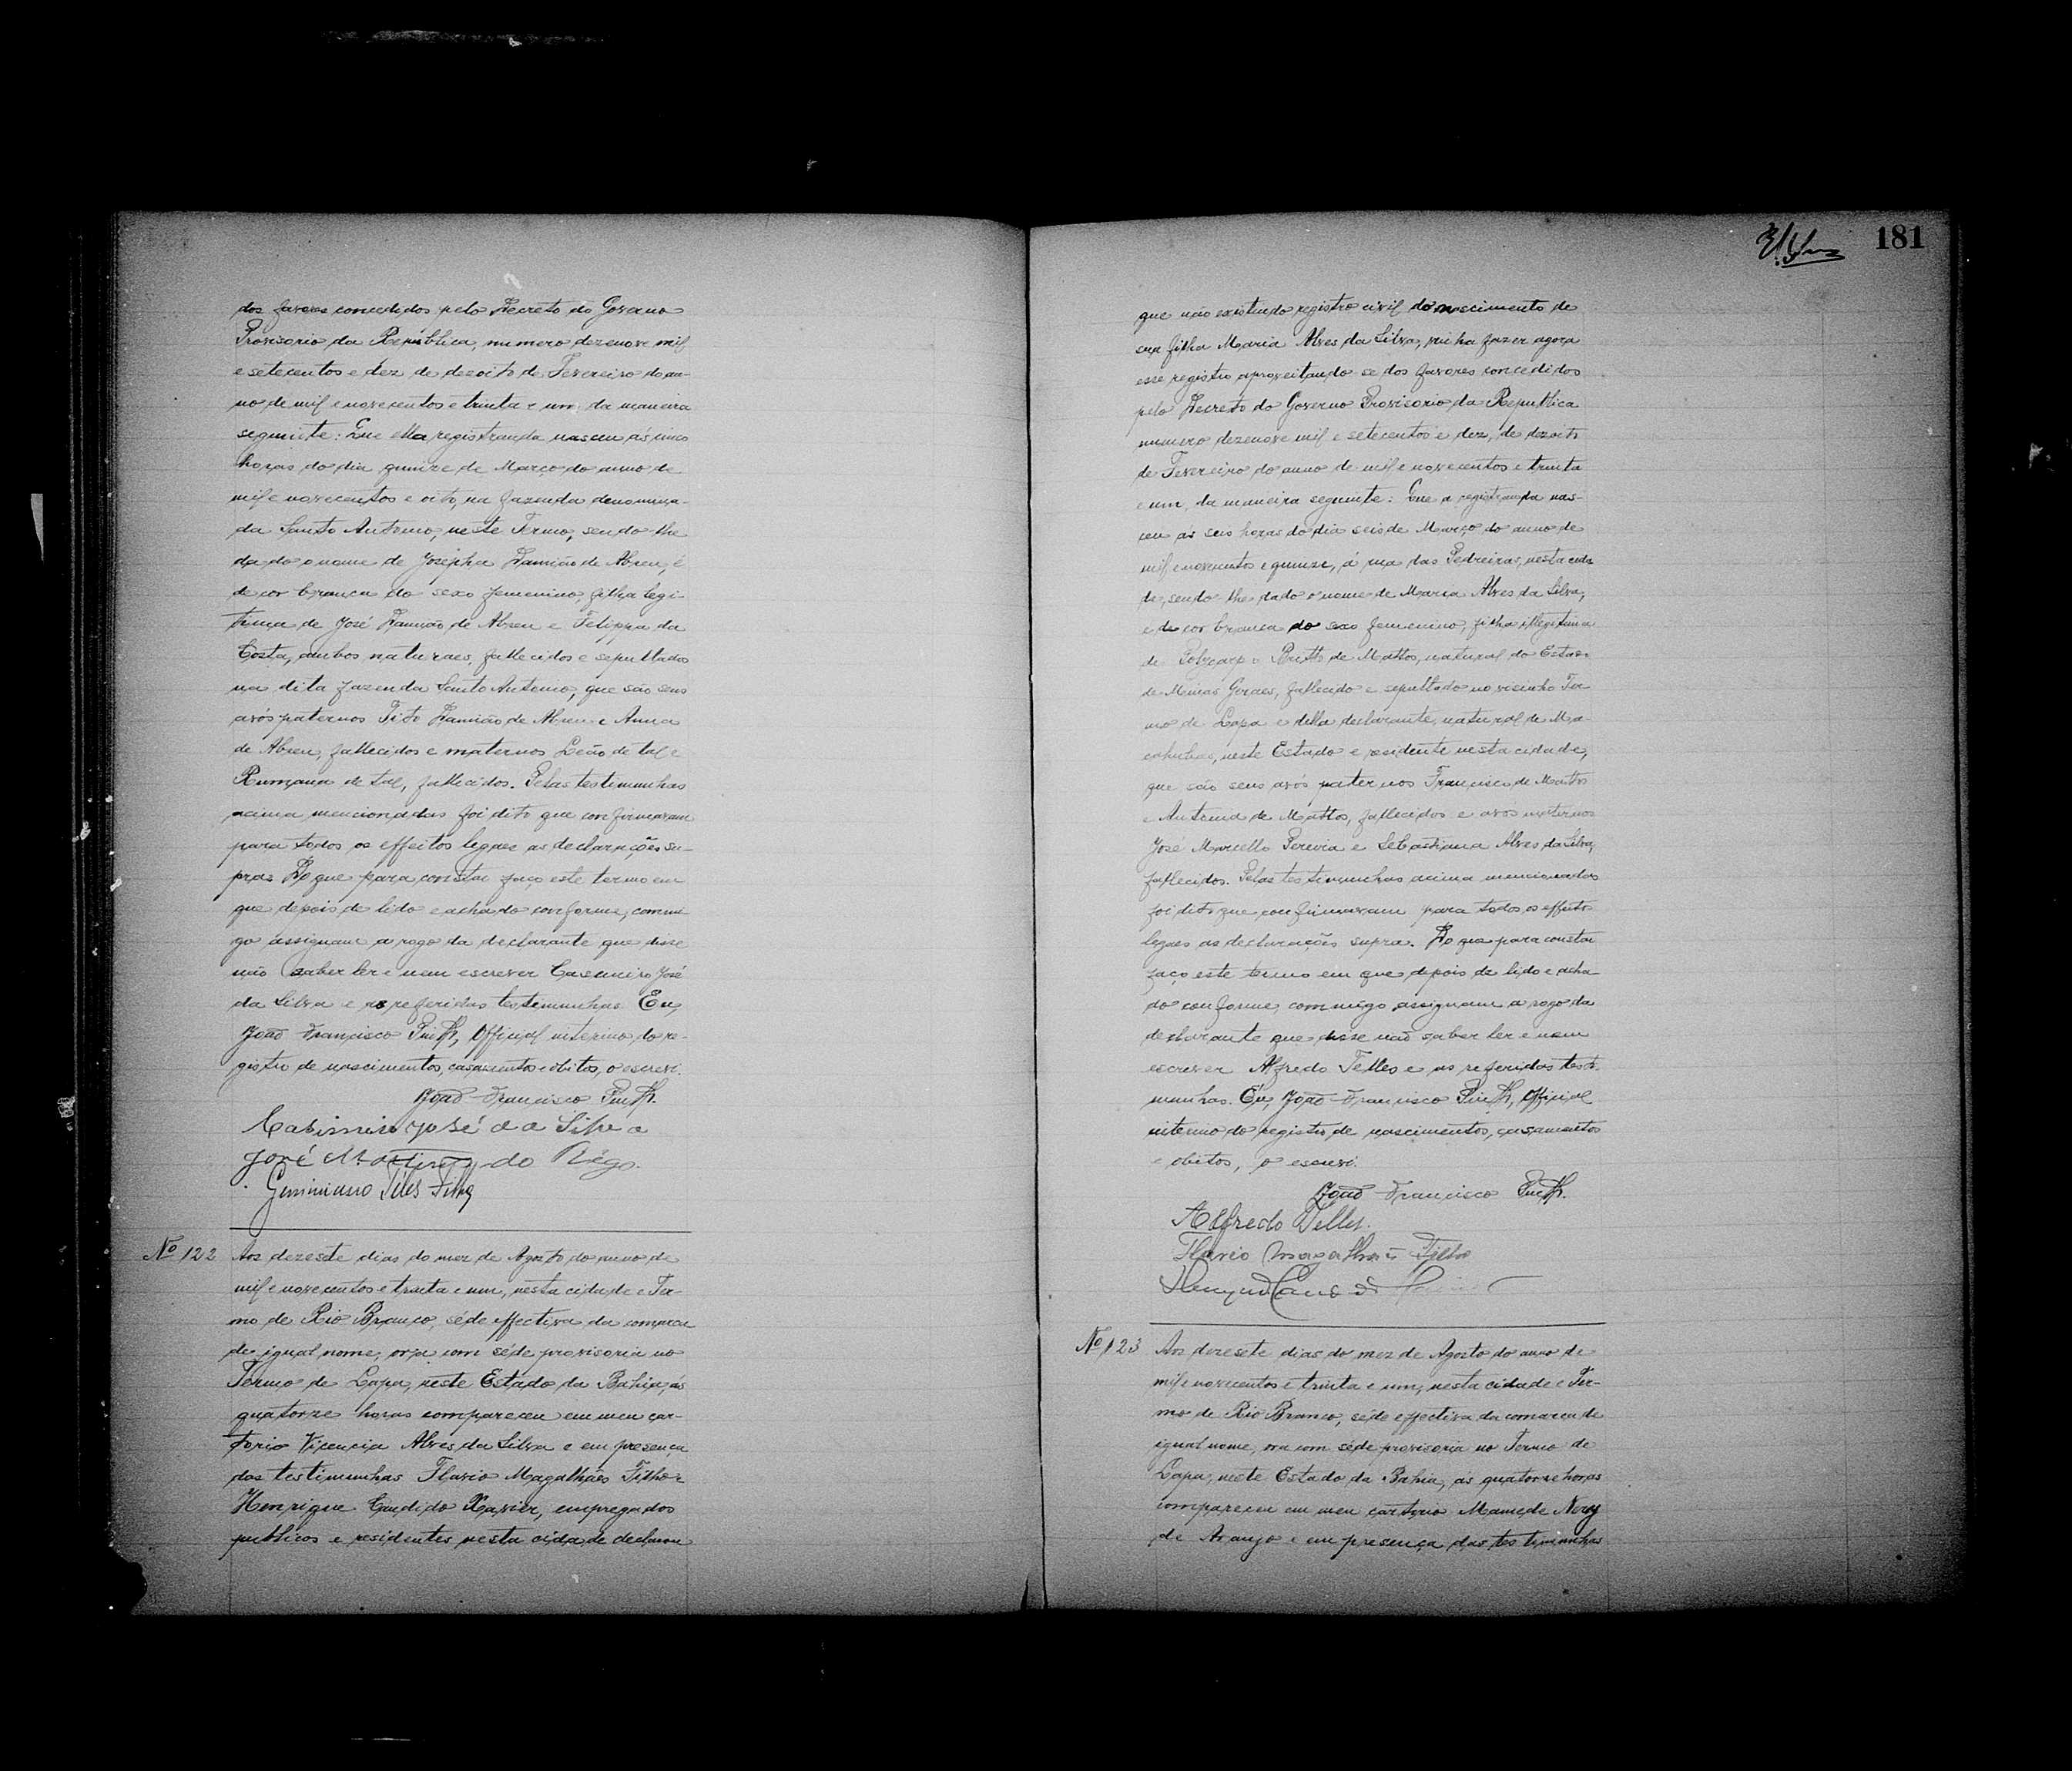 dos favores concedidos pelo Decreto do Governo
Provisorio da República, numero dezenove mil
e setecentos e dez de dezoito de Fevereiro do an-
no de mil e novecentos e trinta e um, da maneira
seguinte: Que ella registranda nasceu ás cinco
horas do dia quinze de Março do anno de
mil e novecentos e oito, na fazenda denomina-
da Santo Antonio, neste Termo, sendo-lhe
dado o nome de Josépha Damião de Abreu, é
de cor branca do sexo femenino, filha legi-
tima de José Damião de Abreu e Felippa da
Costa, ambos naturaes, fallecidos e sepultados
na dita fazenda Santo Antonio, que são seus
avós paternos Tito Damião de Abreu e Anna
de Abreu, fallecidos e maternos Leão de tal e
Rumana de tal, fallecidos. Pelas testimunhas
acima mencionadas foi dito que confirmavam
para todos os effeitos legaes as declarações su-
pras. Do que para constar faço este termo em
que depois de lido e achado conforme, commi
go assignam a rogo da declarante que disse
não saber ler e nem escrever Casemiro José
da Silva e as referidas testemunhas. Eu,
João Francisco Official interino do re-
gistro de nascimentos, casamentos e obitos, o escrevi.
João Francisco
Casimiro José da Silva
José Martins do Rêgo.
Geminiano Filho
Nº 122 Aos dezesete dias do mez de Agosto do anno de
mil e novecentos e trinta e um, nesta cidade e Ter-
mo de Rio Branco, séde effectiva da comarca
de igual nome, ora com séde provisoria no
Termo de Lapa, neste Estado da Bahia, ás
quatorze horas compareceu em meu car-
torio Vicencia Alves da Silva e em presença
das testimunhas Flavio Magalhães Filho e
Henrique Candido Xavier, empregados
publicos e residentes nesta cidade declarou
181
que não existindo registro civil do nascimento de
sua filha Maria Alves da Silva, vinha fazer agora
esse registro aproveitando-se dos favores concedidos
pelo Decreto do Governo Provisorio da Republica
numero dezenove mil e setecentos e dez, de dezoito
de Fevereiro do anno de mil e novecentos e trinta
e um, da maneira seguinte: Que a registranda nas-
ceu ás seis horas do dia seis de Março do anno de
mil e novecentos e quinze, á rua das Pedreiras, nesta cida
de, sendo-lhe dado o nome de Maria Alves da Silva,
e de cor branca do sexo femenino, filha illegitima
de Polycarpo Britto de Mattos, natural do Estado
de Minas Geraes, fallecido e sepultado no visinho Ter-
mo de Lapa e della declarante, natural de Ma-
cahubas, neste Estado e residente nesta cidade,
que são seus avós paternos Francisco de Mattos
e Antonia de Mattos, fallecidos e avos maternos
José Marcello Pereira e Sebastiana Alves da Silva,
fallecidos. Pelas testimunhas acima mencionadas
foi dito que confirmavam para todos os effeitos
legaes as declarações supra. Do que para constar
faço este termo em que depois de lido e acha-
do conforme, commigo assignam a rogo da
declarante que disse não saber ler e nem
escrever Alfredo Telles e as referidas teste-
munhas. Eu, João Francisco Official
interino do registro de nascimentos, casamentos
e obitos, o escrevi.
João Francisco
Alfredo Telles.
Flavio Magalhães Filho
Nº 123 Aos dezesete dias do mez de Agosto do anno de
mil e novecentos e trinta e um, nesta cidade e Ter-
mo de Rio Branco, séde effectiva da comarca de
igual nome, ora com séde provisoria no Termo de
Lapa, neste Estado da Bahia, as quatorze horas
compareceu em meu cartorio Mamede Nery
de Araujo e em presença das testimunhas